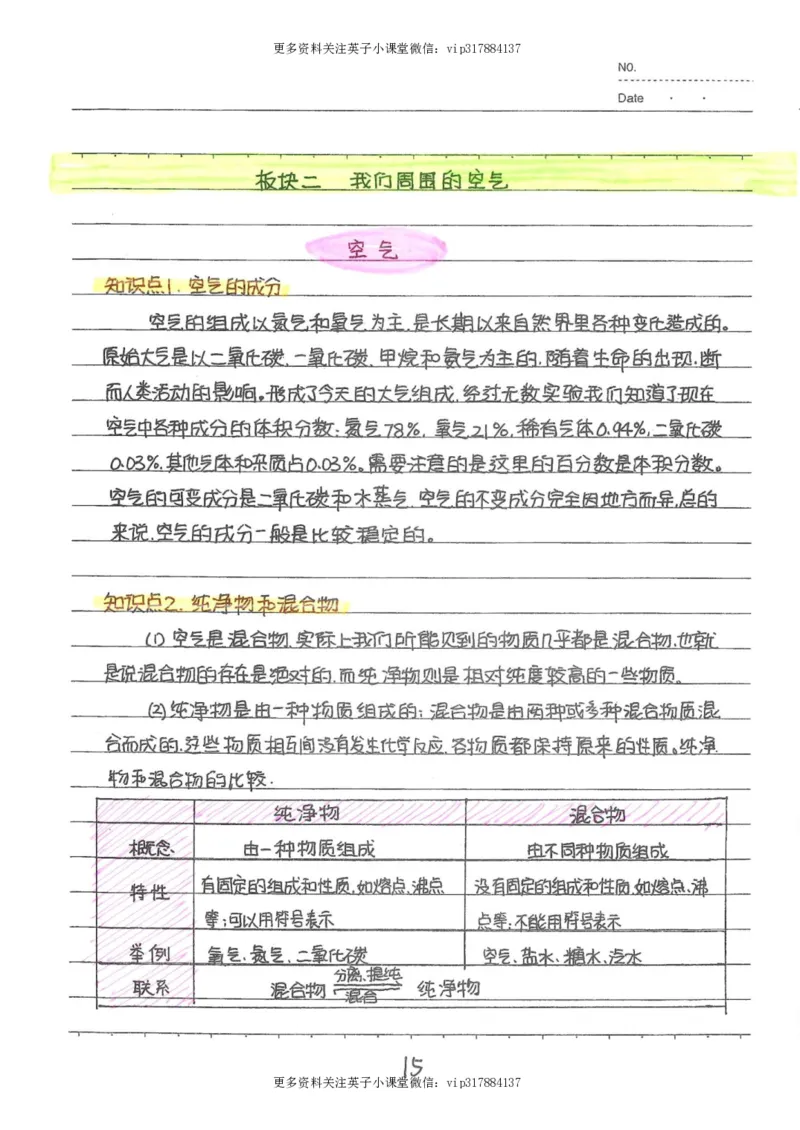 更多资料关注英子小课堂微信：vip317884137
NO.
Date · ·
板块二 我们周围的空气
空气
知识点1. 空气的成分
空气的组成以氮气和氧气为主,是长期以来自然界里各种变化造成的。
原始大气是以二氧化碳、一氧化碳、甲烷和氨气为主的,随着生命的出现,断
而人类活动的影响。形成了今天的大气组成,经过无数实验我们知道了现在
空气中各种成分的体积分数:氮气78%, 氧气21%,稀有气体0.94%,二氧化碳
0.03%,其他气体和杂质占0.03%。需要注意的是这里的百分数是体积分数。
空气的可变成分是二氧化碳和水蒸气,空气的不变成分完全因地方而异,总的
来说,空气的成分一般是比较稳定的。
知识点2. 纯净物和混合物
(1) 空气是混合物,实际上我们所能见到的物质几乎都是混合物,也就
是说混合物的存在是绝对的,而纯净物则是相对纯度较高的一些物质。
(2)纯净物是由一种物质组成的;混合物是由两种或多种混合物质混
合而成的,这些物质相互间没有发生化学反应,各物质都保持原来的性质。纯净
物和混合物的比较.
纯净物 混合物
概念、 由一种物质组成 由不同种物质组成
特性 有固定的组成和性质,如熔点、沸点 没有固定的组成和性质,如熔点、沸
等;可以用符号表示 点等;不能用符号表示
举例 氧气、氮气、二氧化碳 空气、盐水、糖水、汽水
分离、提纯
联系 混合物 ⇌ 纯净物
混合
15
更多资料关注英子小课堂微信：vip317884137